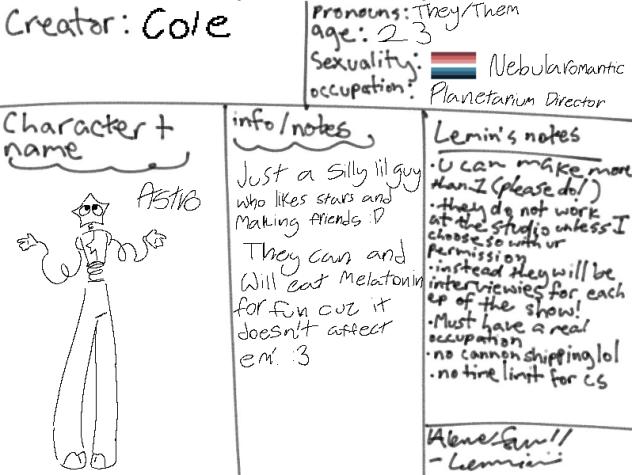 Creator: Cole
Pronouns: They/Them
age: 23
Sexuality: Nebularomantic
occupation: Planetarium Director
Character + name
Astro
info/notes
Just a silly lil guy
who likes stars and
Making friends :D
They can and
Will eat Melatonin
for fun cuz it
doesn't affect
em'. :3
Lemin's notes
• U can make more
than 1 (please do!)
• they do not work
at the studio unless I
choose so with ur
permission
• instead they will be
interviewies for each
ep of the show!
• Must have a real
occupation
• no cannon shipping lol
• no time limit for cs
Have fun!!